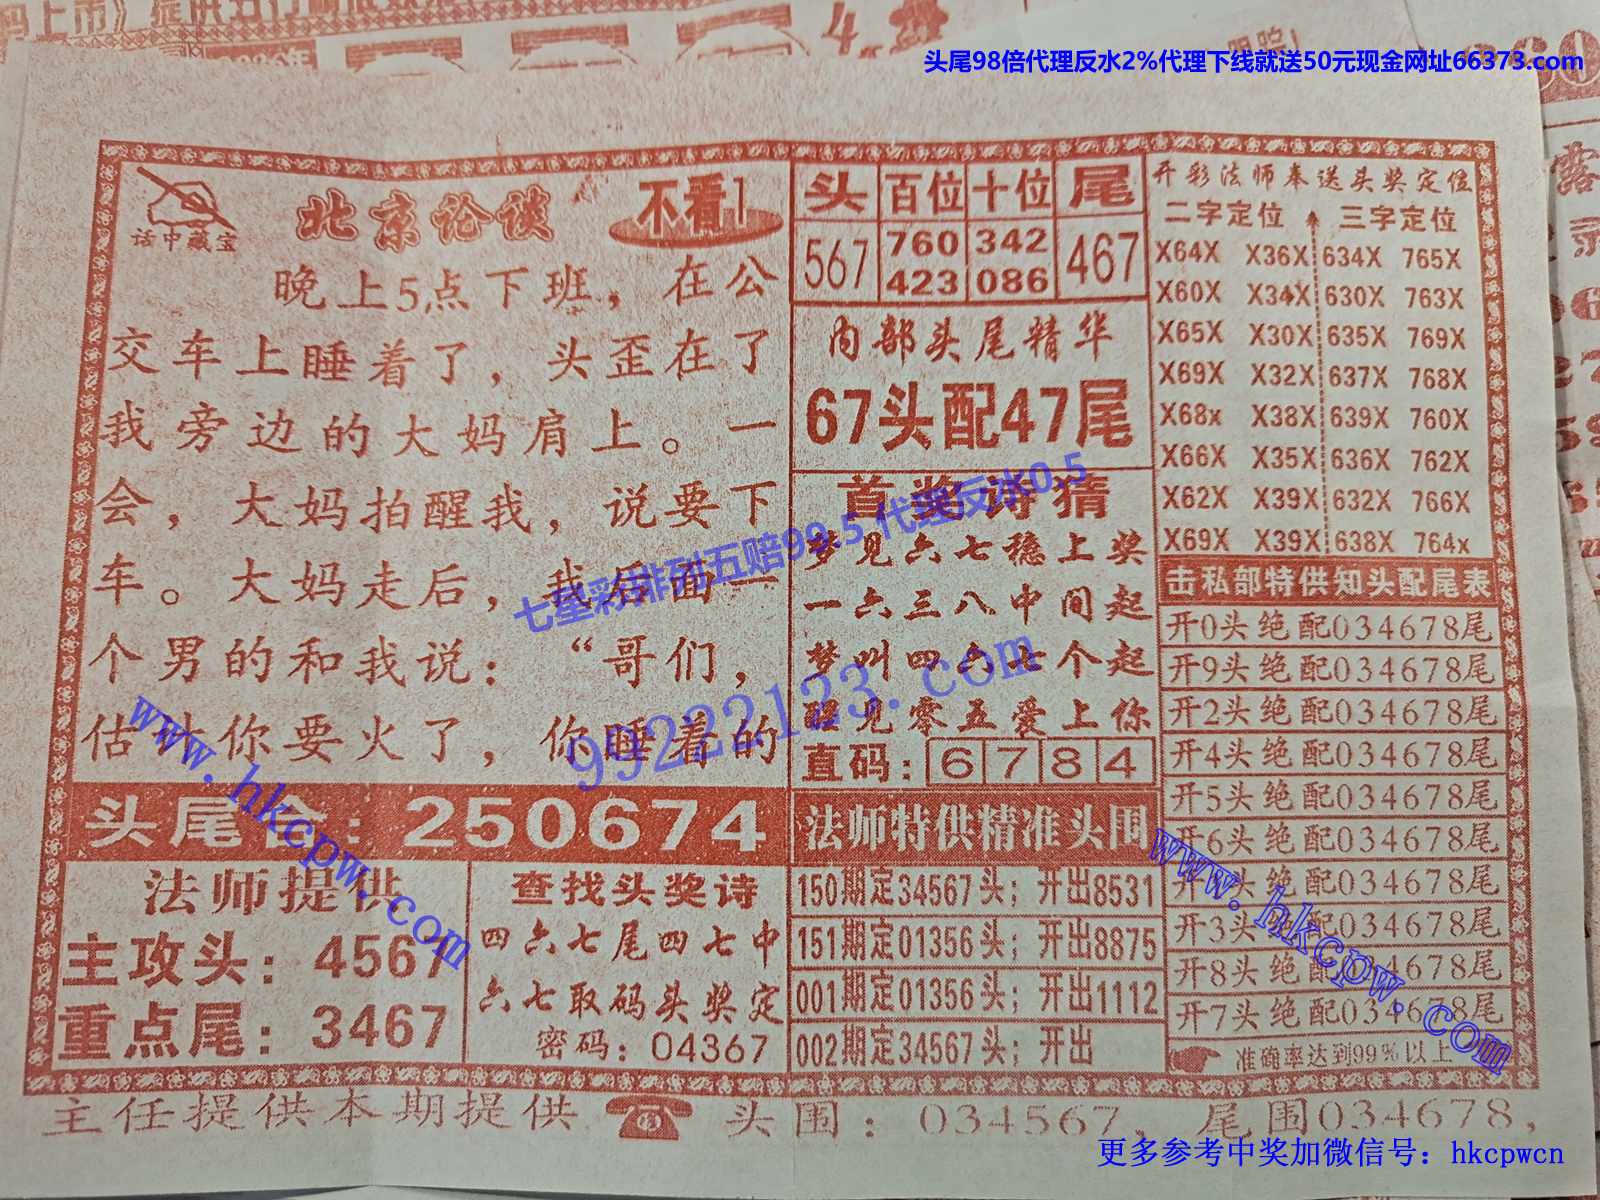 头尾98倍代理反水2%代理下线就送50元现金网址66373.com
话中藏宝
北京论谈
不看1
晚上5.点下班，在公
交车上睡着了，头歪在了
我旁边的大妈肩上。一
会，大妈拍醒我，说要下
车。大妈走后，我后面一
个男的和我说：“哥们，
估计你要火了，你睡着的
头尾合：250674
法师提供
主攻头：4567
重点尾：3467
查找头奖诗
四六七尾四七中
六七取码头奖定
密码：04367
头 百位 十位 尾
567 760 342 467
423 086
内部头尾精华
67头配47尾
首奖诗猜
梦见六七稳上奖
一六三八中间起
梦叫四六七个起
醒见零五爱上你
直码：6 7 8 4
法师特供精准头围
150期定34567头；开出8531
151期定01356头；开出8875
001期定01356头；开出1112
002期定34567头；开出
开彩法师奉送头奖定位
二字定位 三字定位
X64X X36X 634X 765X
X60X X34X 630X 763X
X65X X30X 635X 769X
X69X X32X 637X 768X
X68x X38X 639X 760X
X66X X35X 636X 762X
X62X X39X 632X 766X
X69X X39X 638X 764x
击私部特供知头配尾表
开0头绝配034678尾
开9头绝配034678尾
开2头绝配034678尾
开4头绝配034678尾
开5头绝配034678尾
开6头绝配034678尾
开1头绝配034678尾
开3头绝配034678尾
开8头绝配034678尾
开7头绝配034678尾
准确率达到99%以上
主任提供本期提供 头围：034567，尾围034678，
七星彩排列五赔99.5 代理反水0.5
99222123.com
www.hkcpw.com
www.hkcpw.com
更多参考中奖加微信号：hkcpwcn